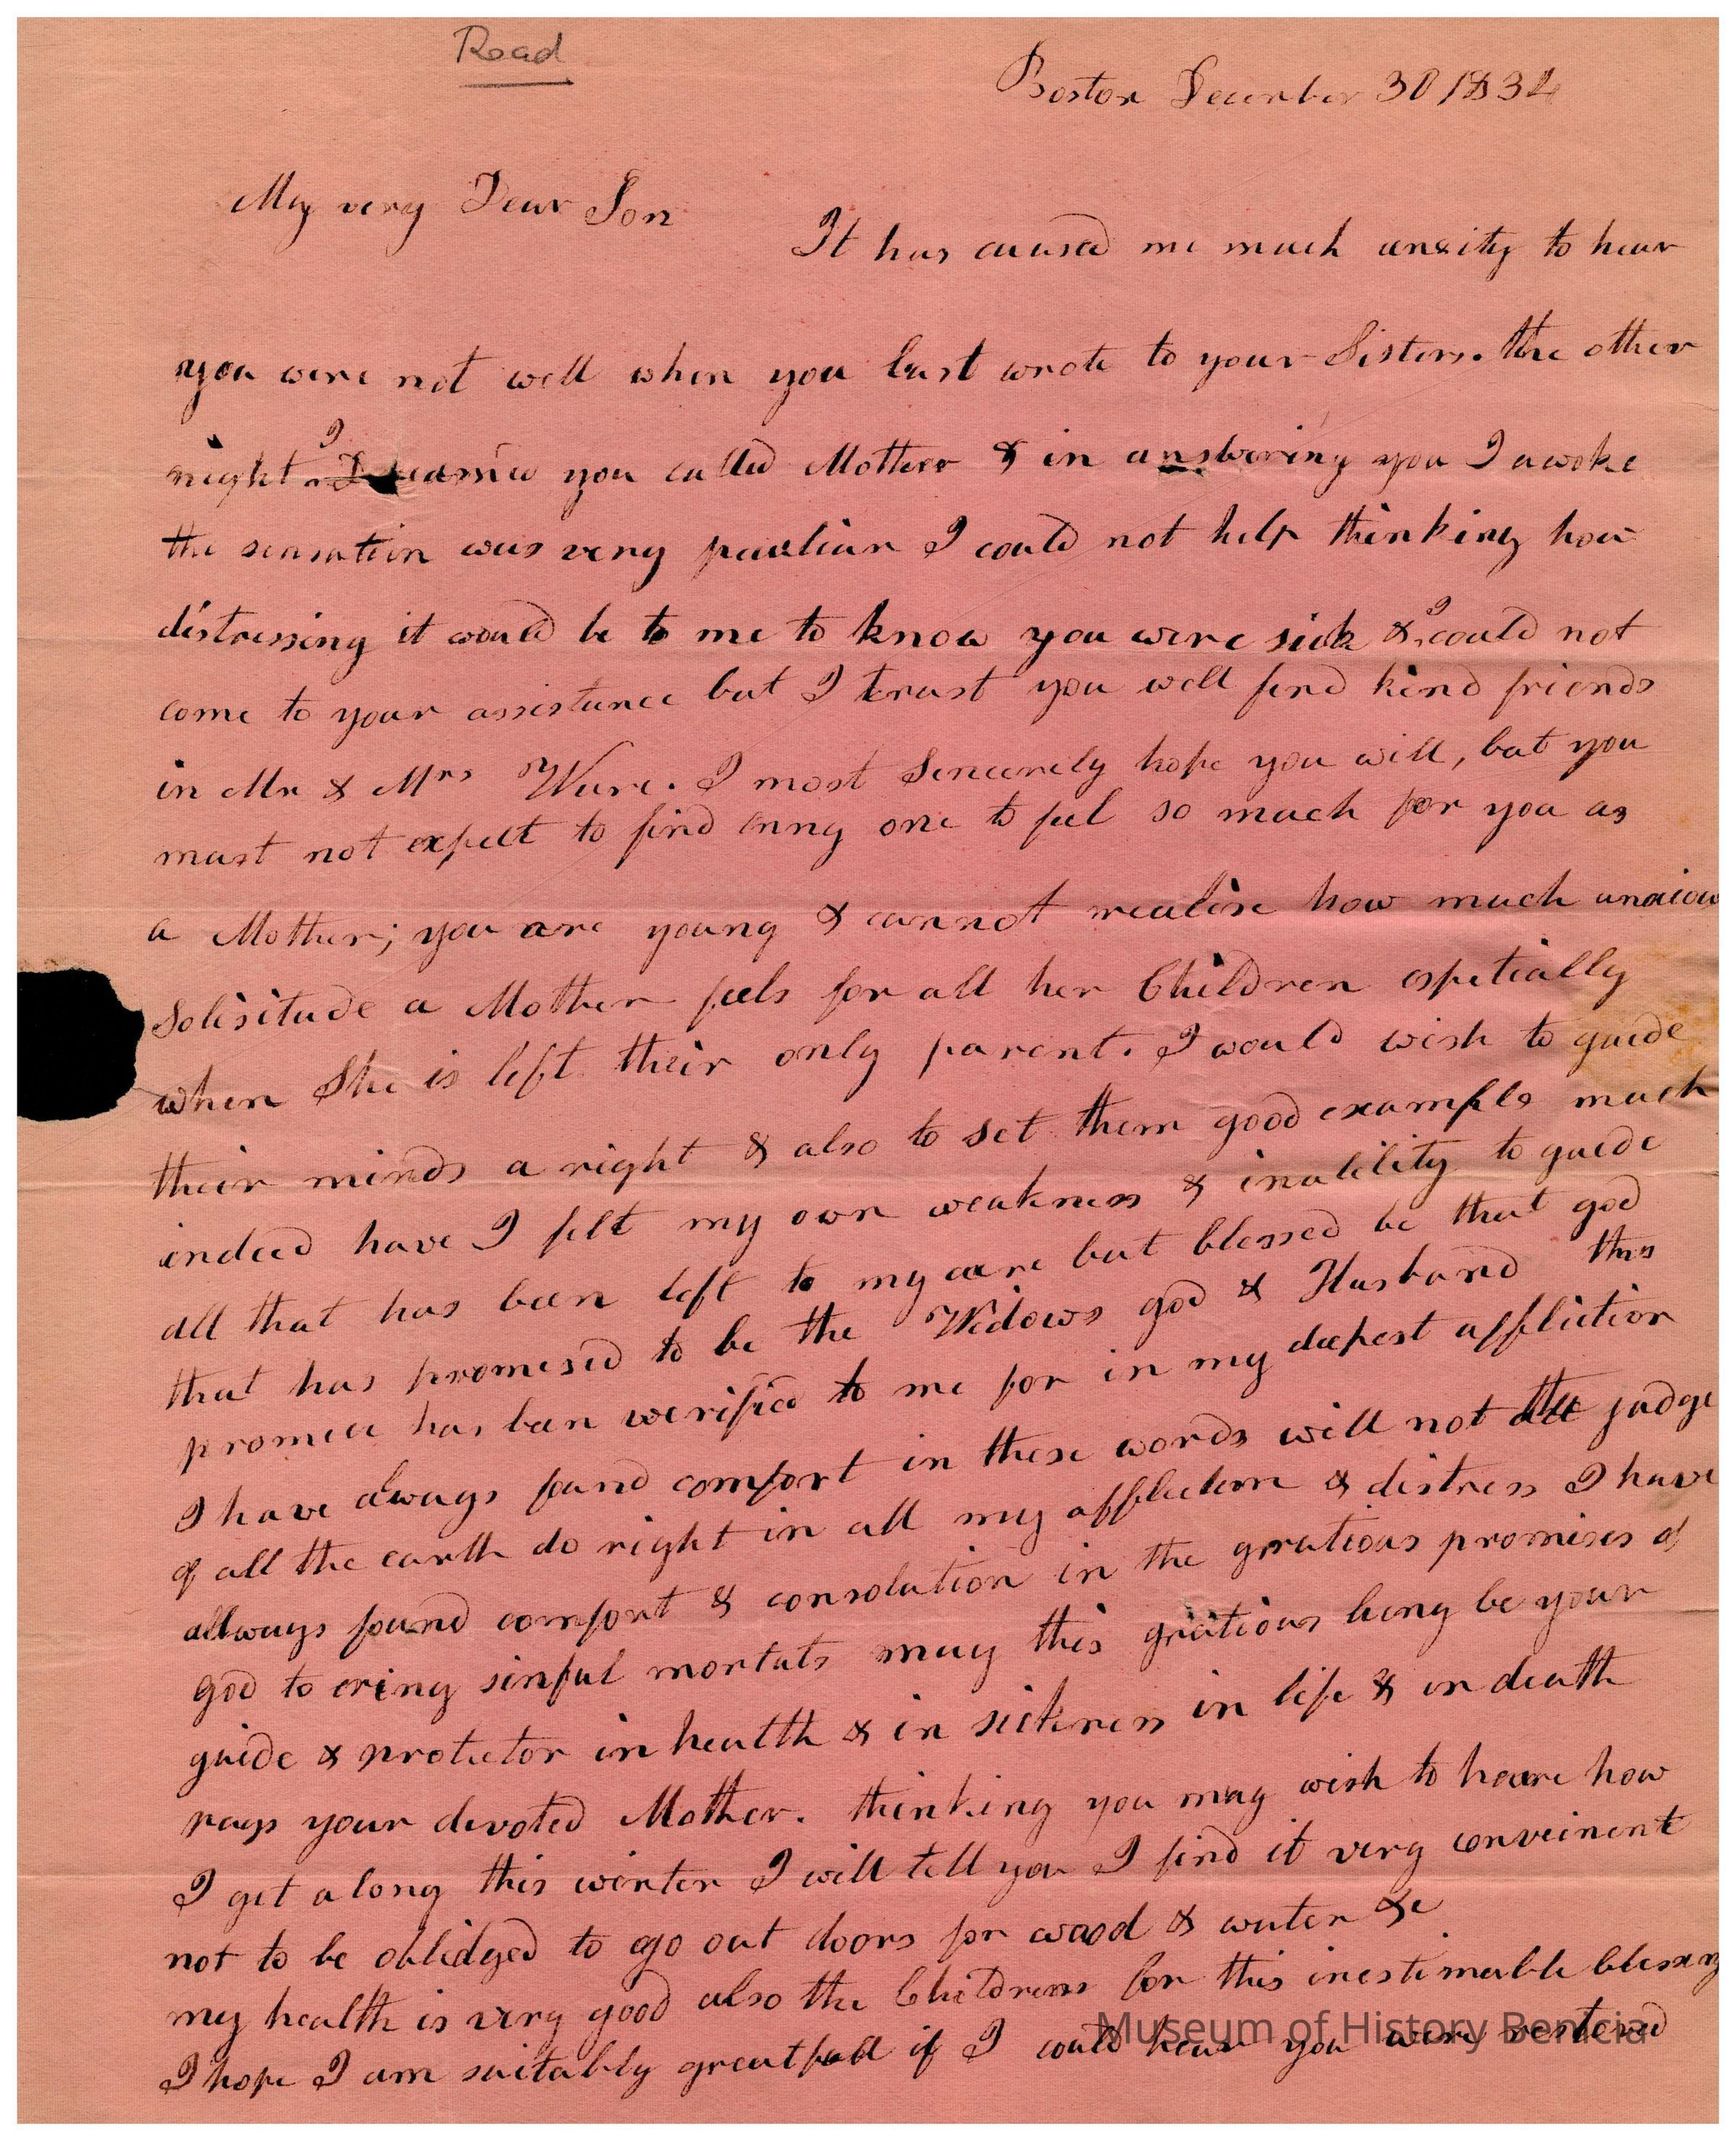 Read
Boston December 30 1834
My very Dear Son
It has caused me much anxity to hear
you were not well when you last wrote to your Sisters. the other
night I dreamed you called Mother & in answering you I awoke
the sensation was very peculiar I could not help thinking how
distressing it would be to me to know you were sick & I could not
come to your assistance but I trust you will find kind friends
in Mr & Mrs Ware. I most Sincerely hope you will, but you
must not expect to find anny one to feel so much for you as
a Mother; you are young & cannot realise how much anxious
Solisitude a Mother feels for all her Children espetially
when She is left their only parent. I would wish to guide
their minds a right & also to set them good example much
indeed have I felt my own weakness & inability to guide
all that has been left to my care but blessed be that god
that has promised to be the Widows god & Husband this
promice has ben verified to me for in my deepest affliction
I have always found comfort in these words will not the judge
of all the earth do right in all my affliction & distress I have
allways found comfort & consolation in the gratious promises of
god to ering sinful mortals may this gratious being be your
guide & protector in health & in sickness in life & in death
prays your devoted Mother. thinking you may wish to heare how
I get along this winter I will tell you I find it very conveinent
not to be oblidged to go out doors for wood & water &c
my health is very good also the Childrens for this inestimable blessing
I hope I am suitably greatfull if I could hear you were restored
Museum of History Benicia